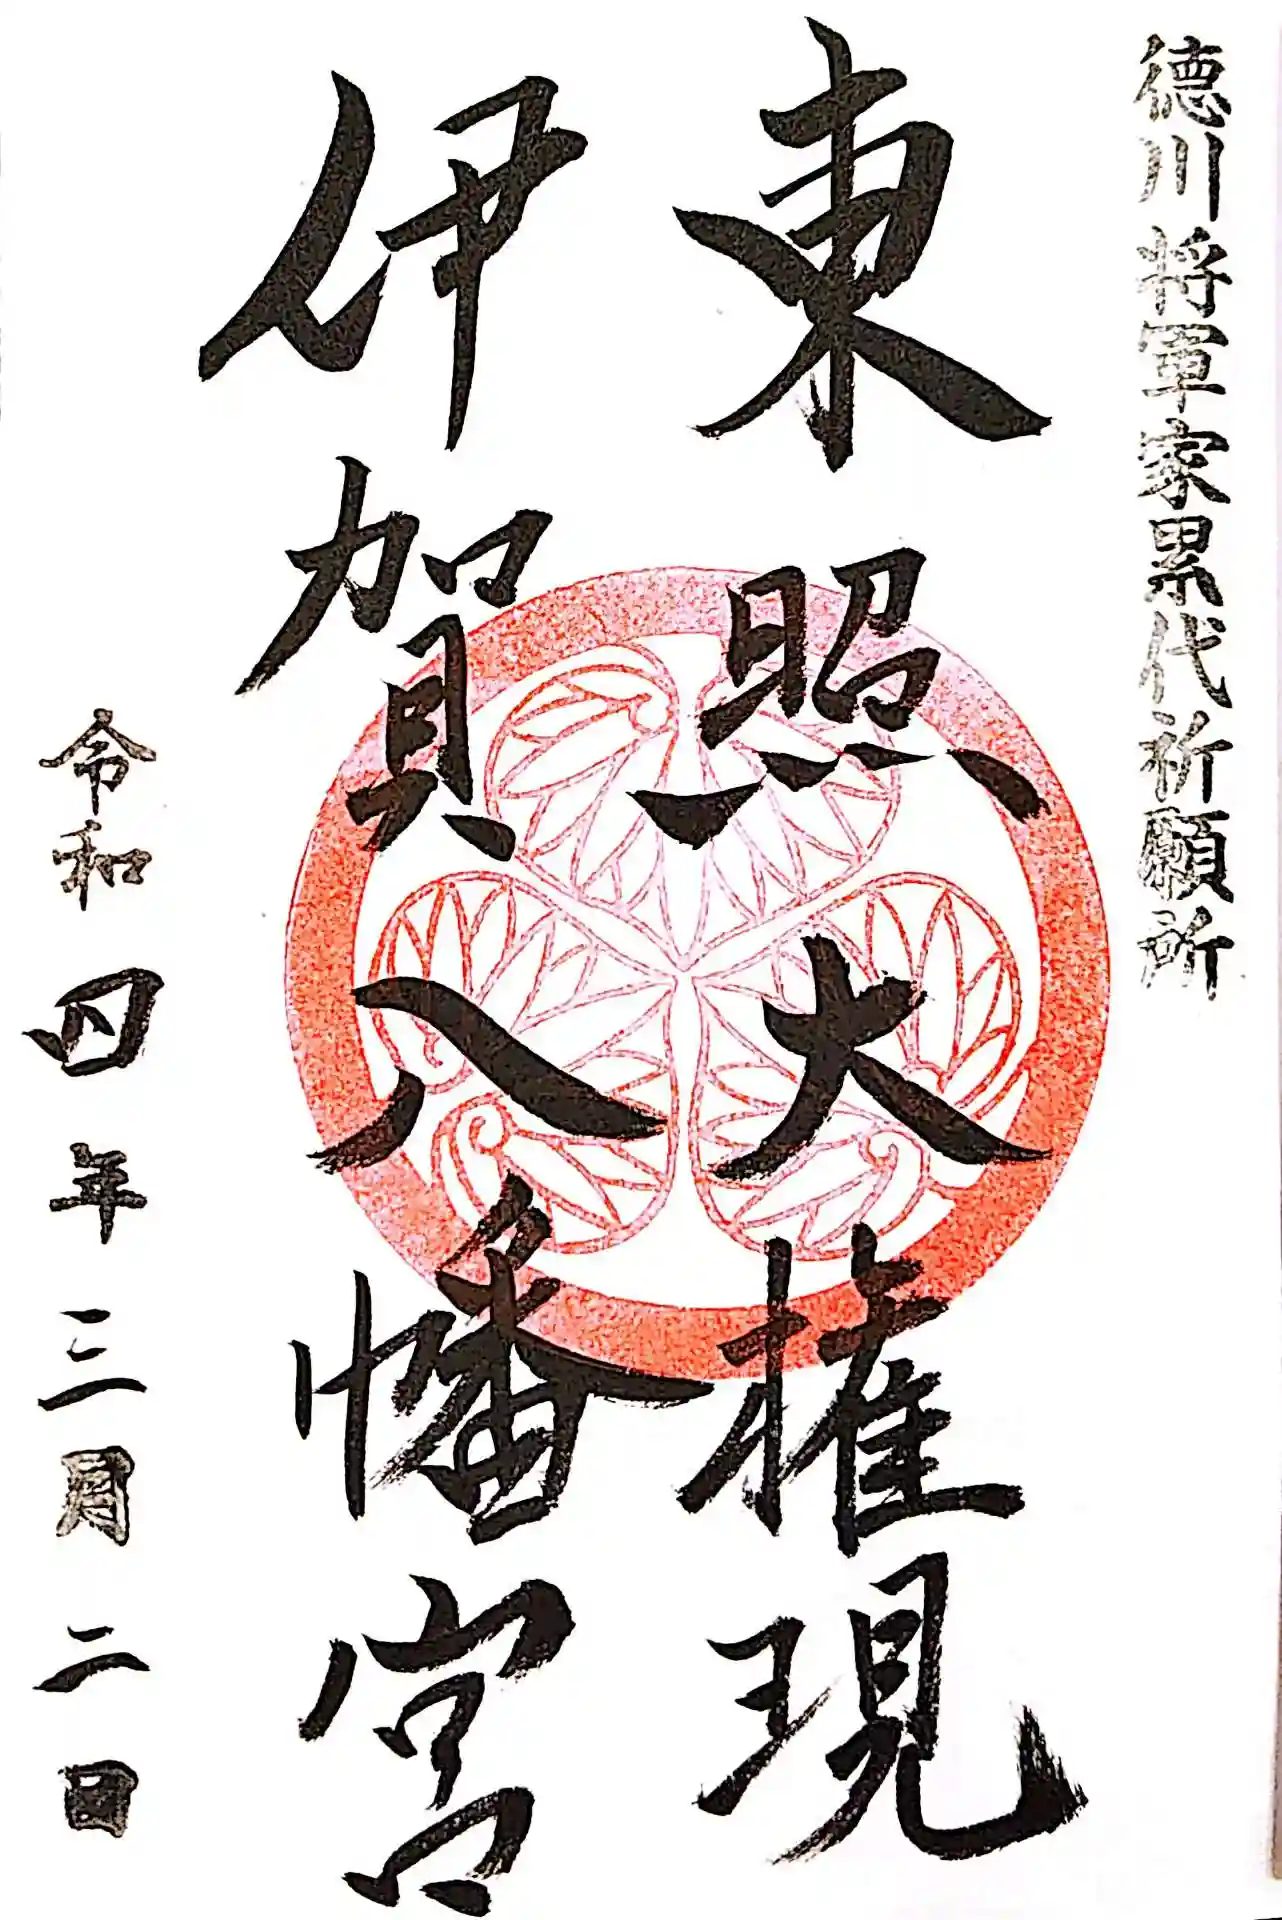 德川将軍家累代祈願所
東照大権現
伊賀八幡宮
令和四年三月二日